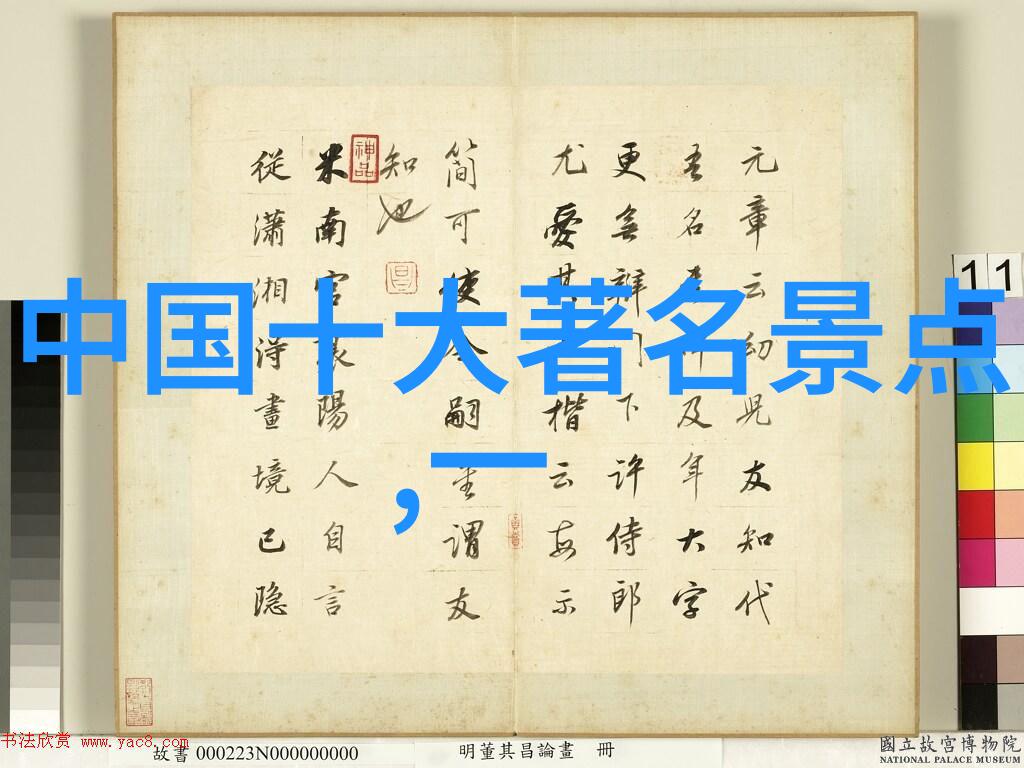 中国十大著名景点
，一
元章云幼兒友知代
吾名及年大字
更無辨門下許侍郎
尤愛其楷云每示
簡可使令嗣書謂友
知也
神品
米南宮襄陽人自言
從瀟湘得畫境已隐
11
书法欣赏 www.yac8.com
故書 000223N000000000
明董其昌論畫 冊
國立故宮博物院
NATIONAL PALACE MUSEUM